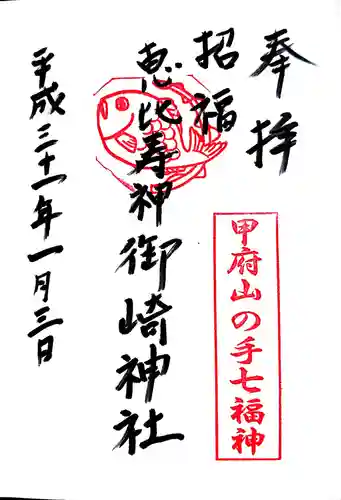 奉拝
甲府山の手七福神
招福
恵比寿神 御崎神社
平成三十一年一月三日